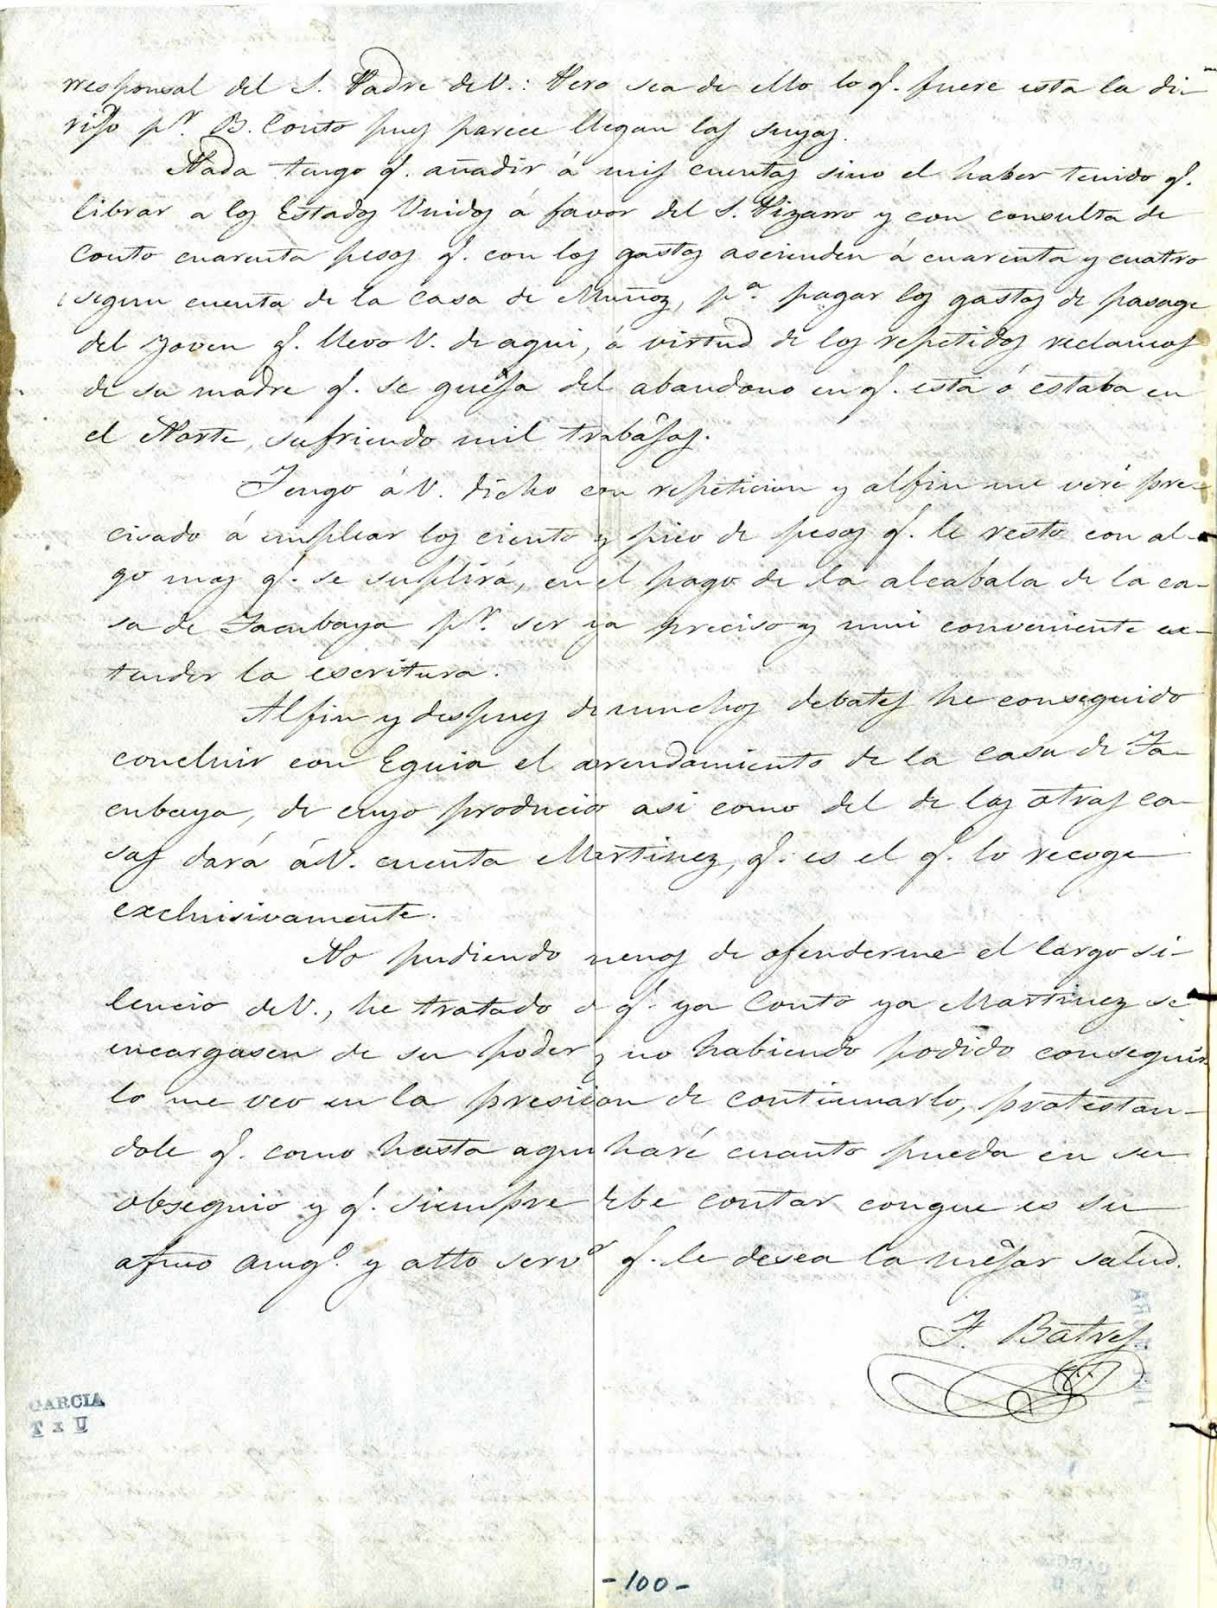 rresponsal del S. Padre de V.: Pero sea de ello lo q.e fuere esta la di-
rijo p.r B. Couto pues parece llegan las suyas.
Nada tengo q.e añadir á mis cuentas sino el haber tenido q.e
librar a los Estados Unidos á favor del S. Pizarro y con consulta de
Couto cuarenta pesos q.e con los gastos ascienden á cuarenta y cuatro
segun cuenta de la casa de Muñoz, p.a pagar los gastos de pasage
del joven q.e llevo V. de aqui, á virtud de los repetidos reclamos
de su madre q.e se quéja del abandono en q.e esta ó estaba en
el Norte, sufriendo mil trabájos.
Tengo á V. dicho con repeticion y alfin me veré pre-
cisado á emplear los ciento y pico de pesos q.e le resto con al-
go mas q.e se suplirá, en el pago de la alcabala de la ca-
sa de Tacubaya p.r ser ya preciso y mui conveniente ex-
tender la escritura.
Alfin y despues de muchos debates he conseguido
concluir con Eguia el arrendamiento de la casa de Ta-
cubaya, de cuyo producio asi como del de las otras ca-
sas dará á V. cuenta Martinez, q.e es el q.e lo recoge
exclusivamente.
No pudiendo menos de ofenderme el largo si-
lencio de V., he tratado d q.e ya Couto ya Martinez se
encargasen de su poder y no habiendo podido conseguir-
lo me veo en la presicion de continuarlo, protestan-
dole q.e como hasta aqui haré cuanto pueda en su
obsequio y q.e siempre debe contar conque es su
afmo amg.o y atto serv.or q.e le desea la méjor salud.
F. Batres
GARCIA
T x U
-100-